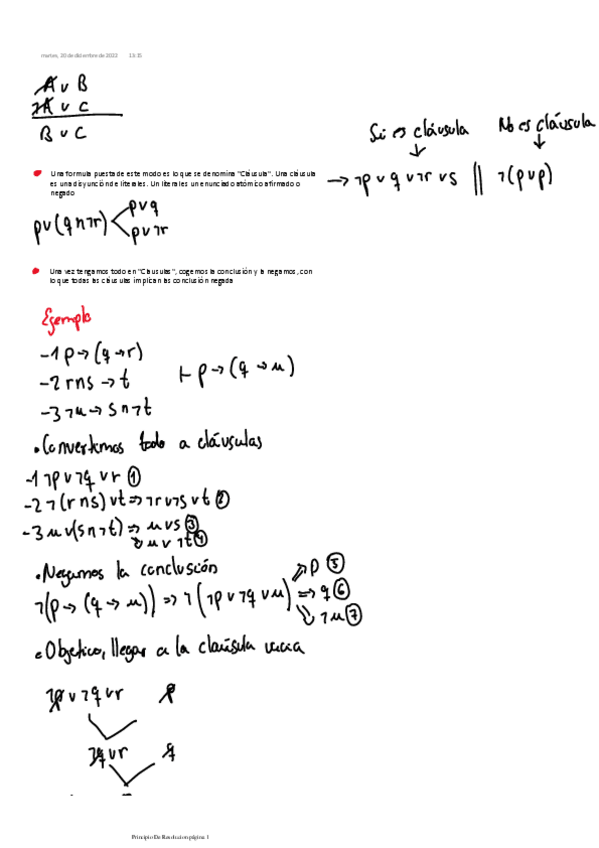 martes, 20 de diciembre de 2022 13:15
A v B
¬A v C
B v C
Si es cláusula
No es cláusula
→ ¬p v q v ¬r v s || ¬(p v p)
Una formula puesta de este modo es lo que se denomina "Cláusula". Una cláusula
es una disyunción de literales. Un literal es un enunciado atómico afirmado o
negado
p v (q ∧ ¬r)
p v q
p v ¬r
Una vez tengamos todo en "Clausulas", cogemos la conclusión y la negamos, con
lo que todas las cláusulas implican las conclusión negada
Ejemplo
-1 p → (q → r)
-2 r ∧ s → t
⊢ p → (q → u)
-3 ¬u → s ∧ ¬t
• Convertimos todo a cláusulas
-1 ¬p v ¬q v r ①
-2 ¬(r ∧ s) v t ⇒ ¬r v ¬s v t ②
-3 u v (s ∧ ¬t) ⇒ u v s ③
⇒ u v ¬t ④
• Negamos la conclusión
¬(p → (q → u)) ⇒ ¬(¬p v ¬q v u)
⇒ p ⑤
⇒ q ⑥
⇒ ¬u ⑦
• Objetivo, llegar a la claúsula vacia
¬p v ¬q v r p
¬q v r q
Principio De Resolucion página 1